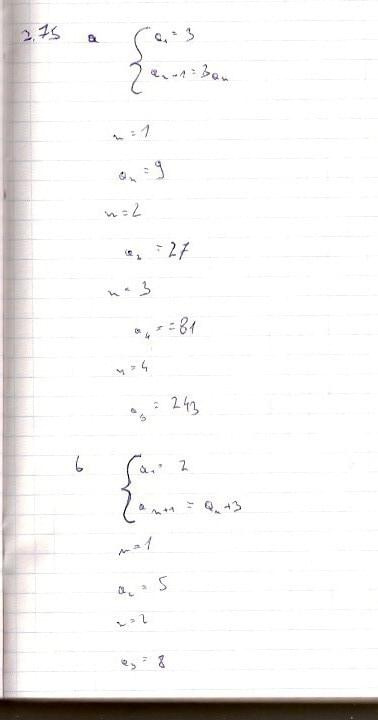 2.75 a { a₁ = 3
aₙ₋₁ = 3aₙ
n = 1
aₙ = 9
n = 2
a₃ = 27
n = 3
a₄ = = 81
n = 4
a₅ = 243
b { a₁ = 2
aₙ₊₁ = aₙ + 3
n = 1
a₂ = 5
n = 2
a₃ = 8